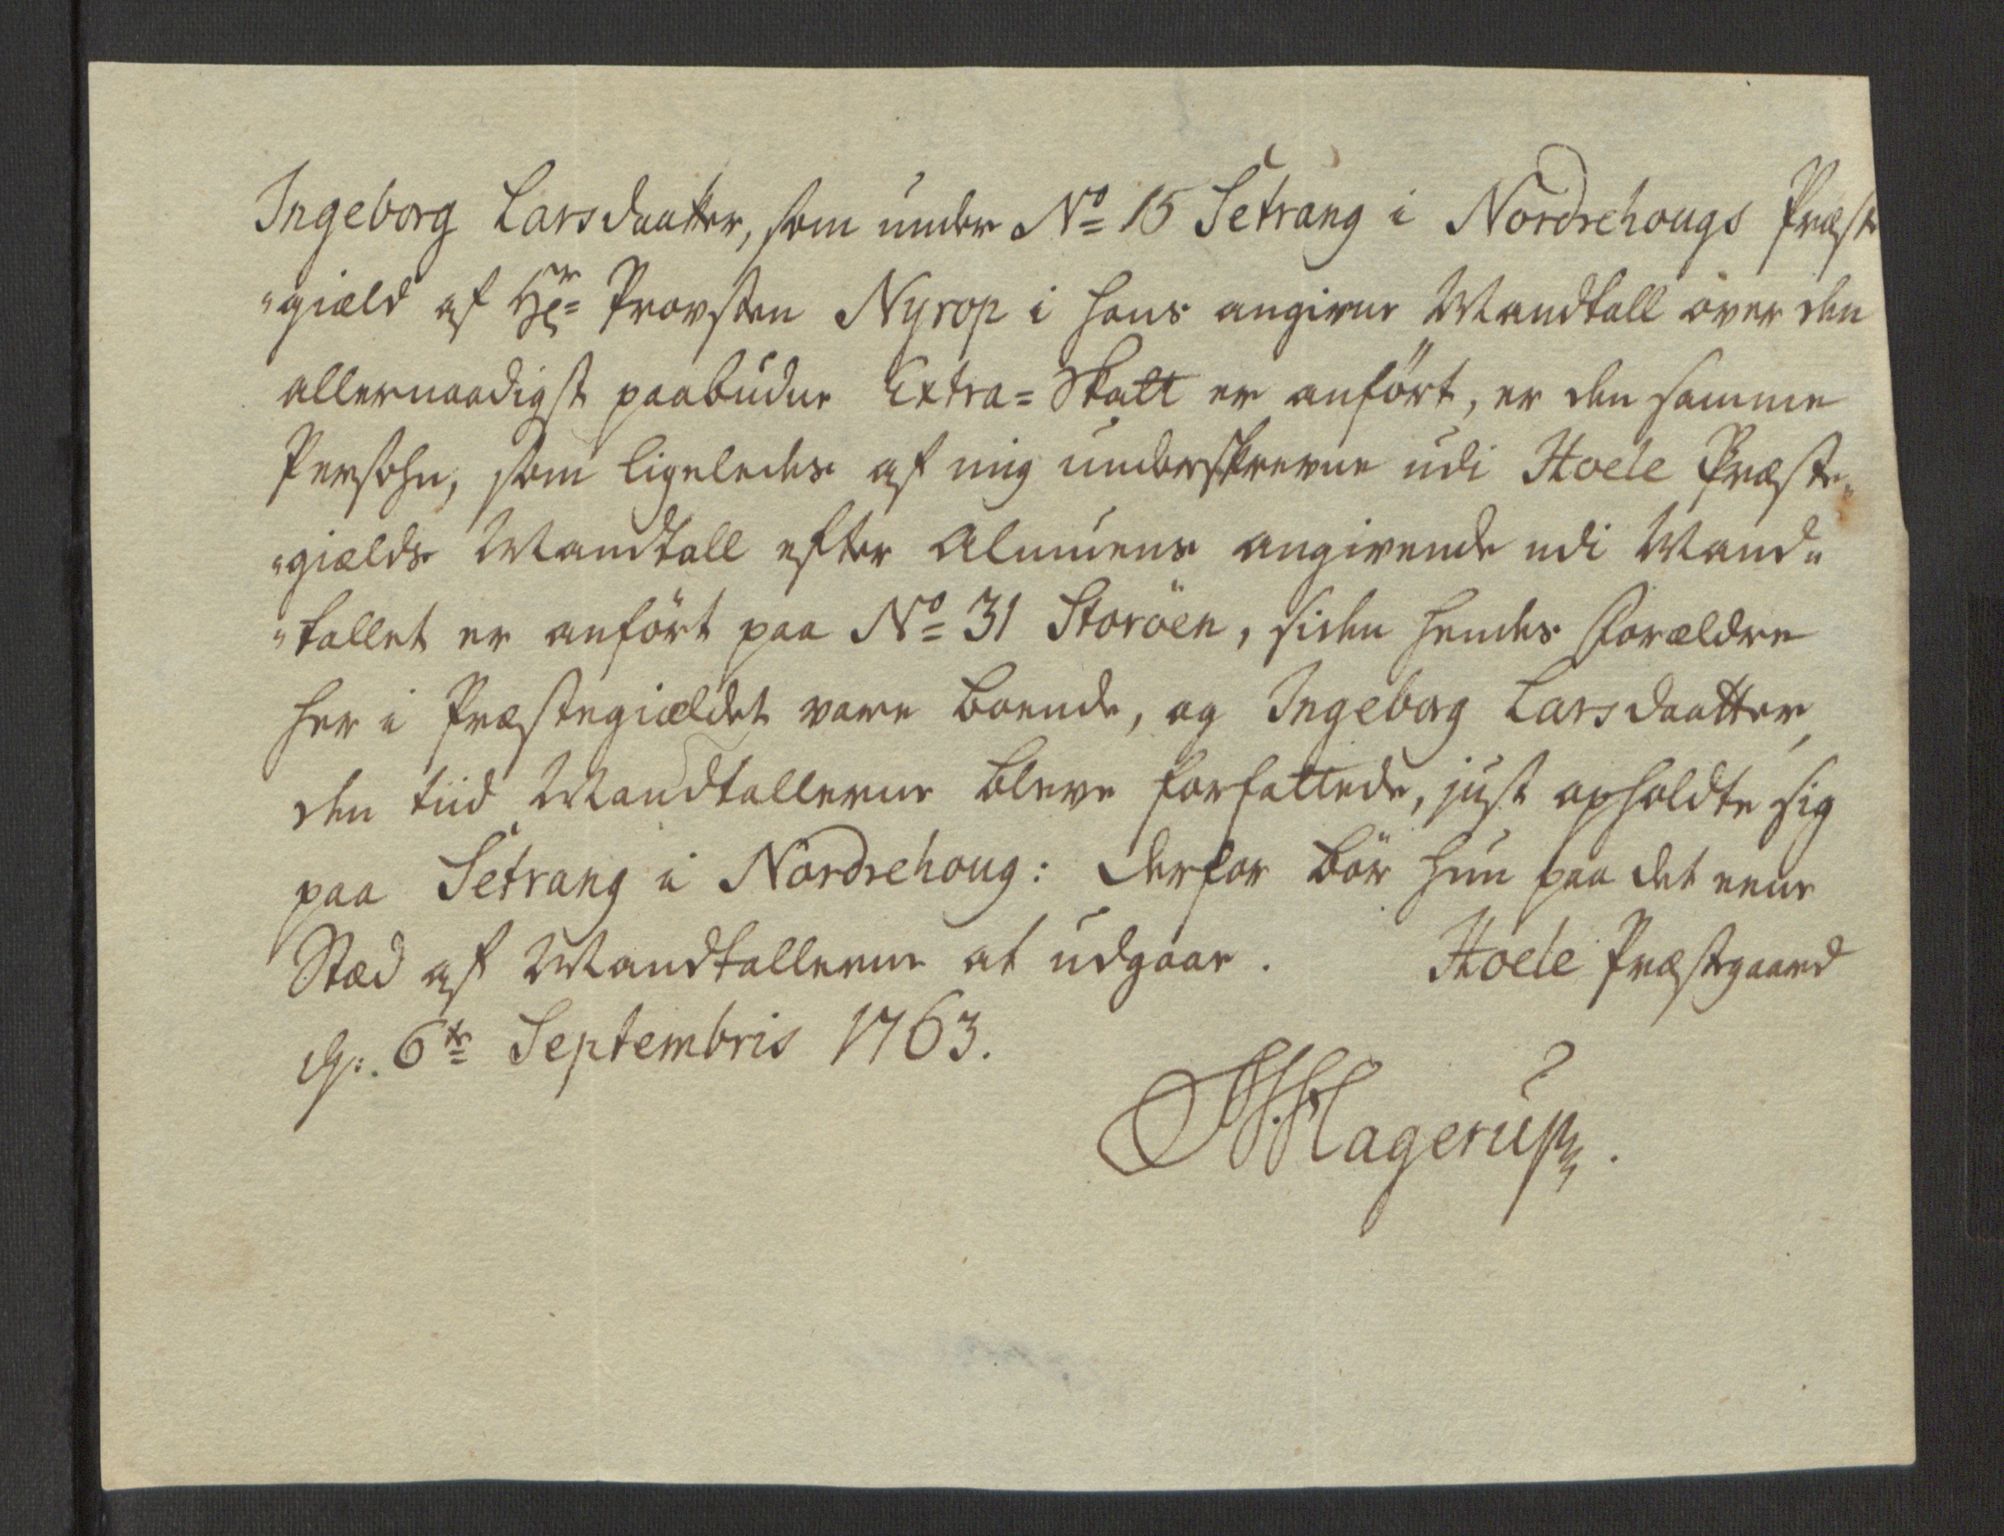 Ingeborg Larsdaatter, som under No 15 Setrang i Nordrehougs Præste
"giæld af Hr= Provsten Nyrop i hans angivne Mandtall över den
allernaadigst paabudne Extra=Skatt er anført, er den samme
Persohn, som ligeledes af mig underskrevne udi Hoele Præste"
"giælds Mandtall efter Almuens angivende udi Mand"
"tallet er anført paa No 31 Storöen, siden hendes Forældre
her i Præstegiældet vare boende, og Ingeborg Larsdaatter,
den tiid Mandtallerne bleve forfattede, just opholdte sig
paa Setrang i Nordrehoug: derfor bör hun paa det eene
Stæd af Mandtallerne at udgaae. Hoele Præstgaard
d: 6te Septembris 1763.
Hagerup.